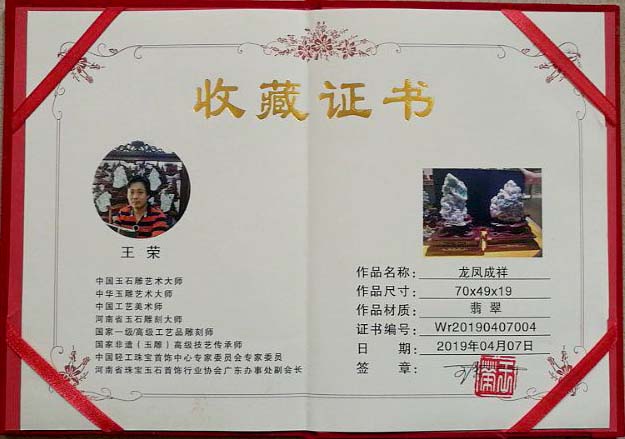 收藏证书
王 荣
中国玉石雕艺术大师
中华玉雕艺术大师
中国工艺美术师
河南省玉石雕刻大师
国家一级/高级工艺品雕刻师
国家非遗（玉雕）高级技艺传承师
中国轻工珠宝首饰中心专家委员会专家委员
河南省珠宝玉石首饰行业协会广东办事处副会长
作品名称： 龙凤成祥
作品尺寸： 70x49x19
作品材质： 翡 翠
证书编号： Wr20190407004
日 期： 2019年04月07日
签 章：